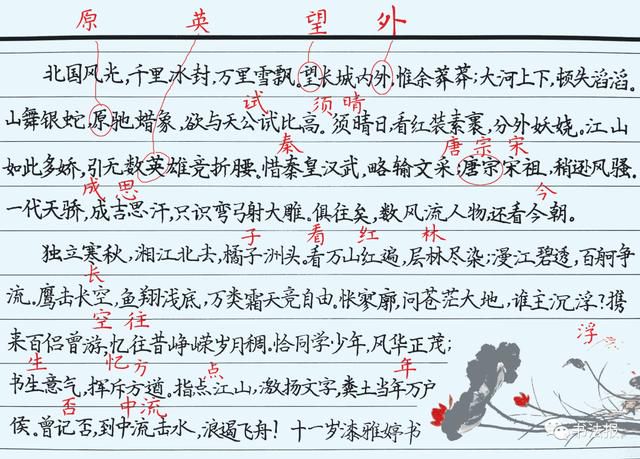 原 英 望 外
北国风光,千里冰封,万里雪飘。望长城内外,惟余莽莽;大河上下,顿失滔滔。
试 须晴
山舞银蛇,原驰蜡象,欲与天公试比高。须晴日,看红装素裹,分外妖娆。江山
秦 唐宗宋
如此多娇,引无数英雄竞折腰。惜秦皇汉武,略输文采;唐宗宋祖,稍逊风骚。
成思 今
一代天骄,成吉思汗,只识弯弓射大雕。俱往矣,数风流人物,还看今朝。
子 看 红 林
独立寒秋,湘江北去,橘子洲头。看万山红遍,层林尽染;漫江碧透,百舸争
长
流。鹰击长空,鱼翔浅底,万类霜天竞自由。怅寥廓,问苍茫大地,谁主沉浮?携
空 往 浮
来百侣曾游,忆往昔峥嵘岁月稠。恰同学少年,风华正茂;
生 忆 方 点 年
书生意气,挥斥方遒。指点江山,激扬文字,粪土当年万户
否 中流
侯。曾记否,到中流击水,浪遏飞舟?十一岁漆雅婷书
书法报